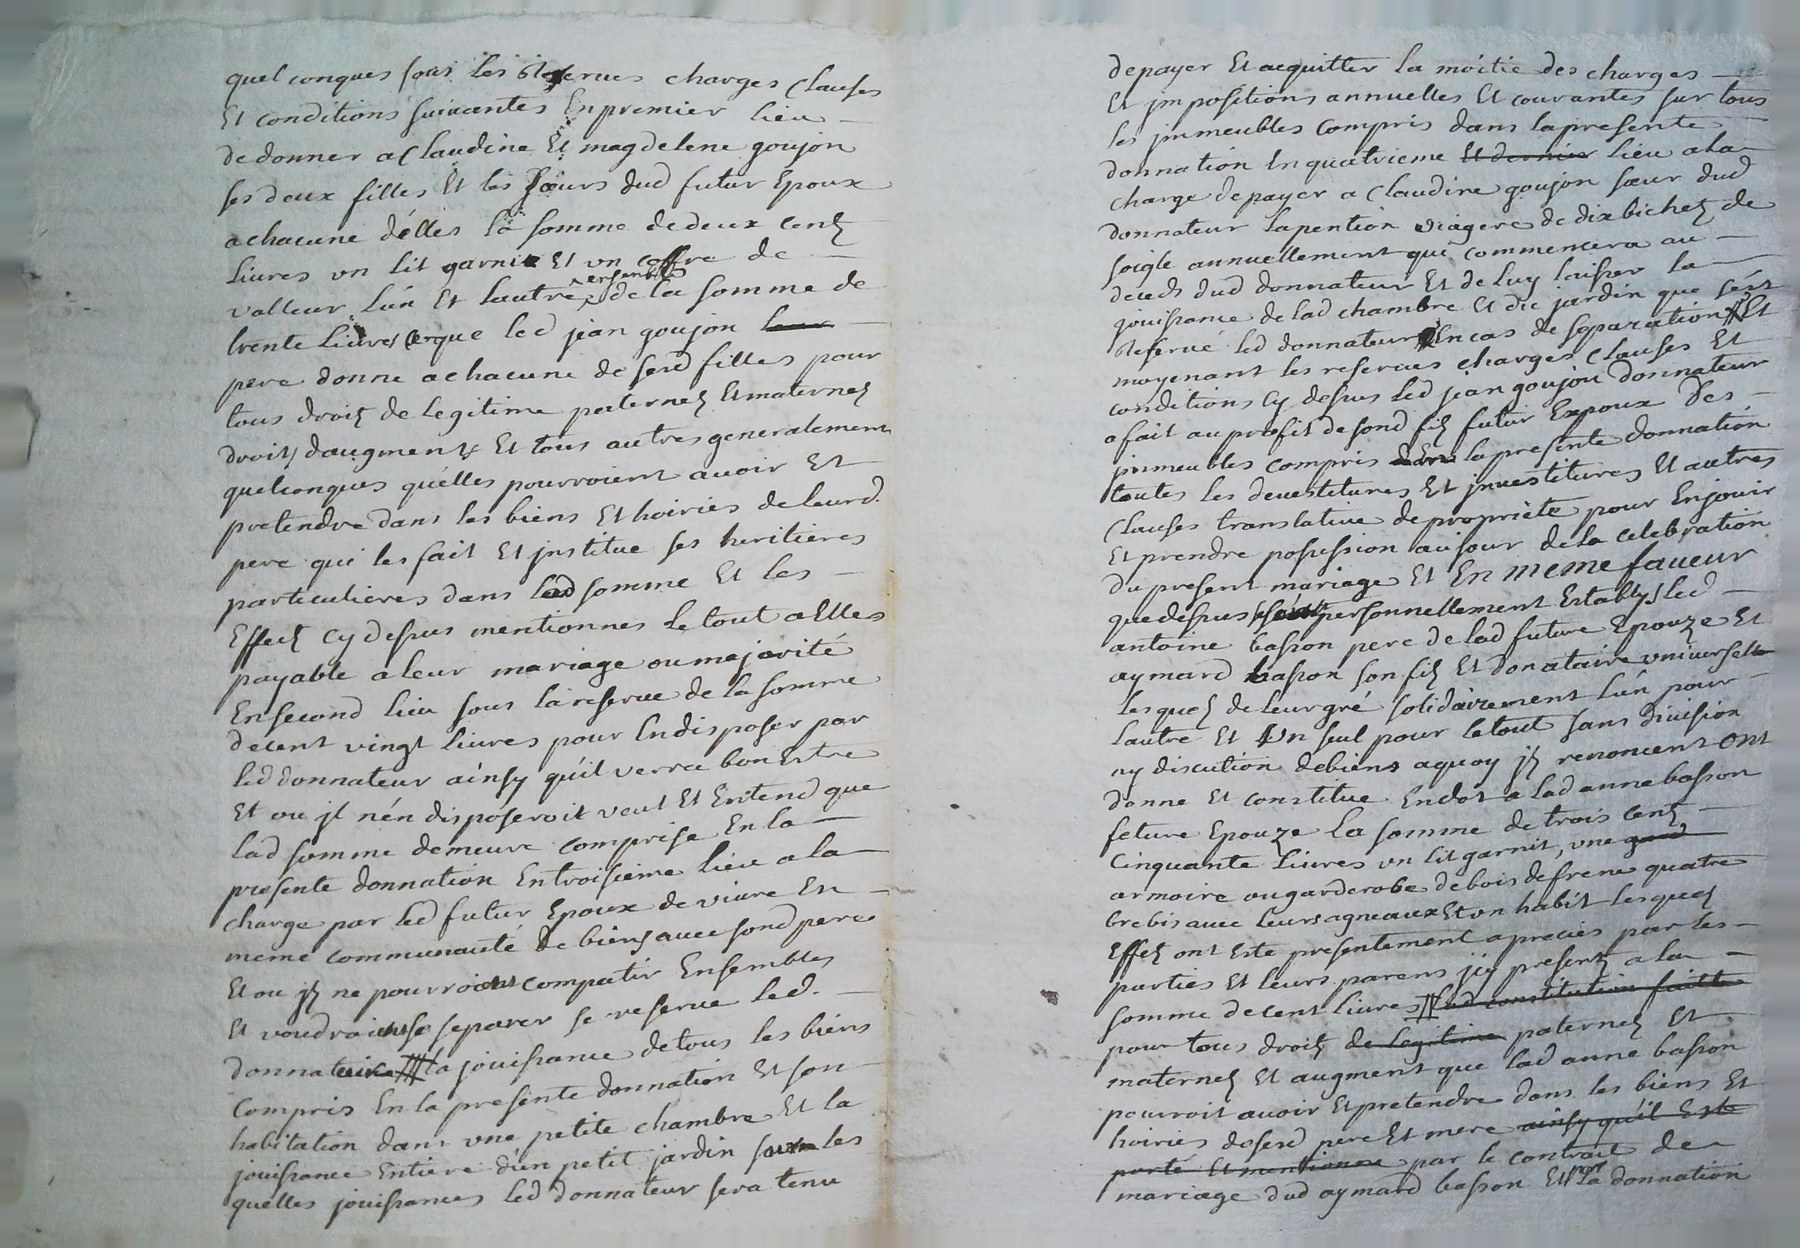 quelconques sous les reserves charges clauses
Et conditions suivantes En premier lieu
de donner a Claudine Et magdelene goujon
ses deux filles Et les sœurs dud futur Epoux
a chacune d'élles la somme de deux cents
livres un lit garni Et un coffre de
valleur lún Et lautre ensembles de la somme de
trente livres que led jean goujon leur
pere donne a chacune de sesd filles pour
tous droits de legitime paternels Et maternels
droits daugments Et tous autres generalement
quelconques quélles pourroient avoir Et
pretendre dans les biens Et hoiries de leurd.
pere qui les fait Et jnstitue ses heritieres
particulieres dans lad somme Et les
Effets cy dessus mentionnes le tout a Elles
payable a leur mariage ou majorité
En second lieu sous la reserve de la somme
de cent vingt livres pour En disposer par
led donnateur aínsy qúil verra bon Estre
Et ou jl nén disposeroit veut Et Entend que
lad somme demeure comprise En la
presente donnation En troisieme lieu a la
charge par led futur Epoux de vivre En
meme communauté de biens avec sond pere
Et ou jls ne pourroient compatir Ensembles
Et voudroient se separer se reserve led.
donnateur la jouissance de tous les biens
compris En la presente donnation Et son
habitation dans une petite chambre Et la
jouissance Entiere dún petit jardin sur les
quelles jouissances led donnateur sera tenu
de payer Et acquitter la moitie des charges
Et jmpositions annuelles Et courantes sur tous
les jmmeubles compris dans la presente
donnation En quatrieme Et dernier lieu a la
charge de payer a Claudine goujon sœur dud
donnateur la pention viagere de dix bichets de
soigle annuellement qui commencera au
deceds dud donnateur Et de luy laisser la
jouissance de lad chambre Et dic jardin que sést
reservé led donnateur En cas de separation Et
moyenant les reserves charges clauses Et
conditions cy dessus led jean goujon donnateur
a fait au profit de sond fils futur Expoux des
jmmeubles compris dans la presente donnation
toutes les devestitures Et jnvestitures Et autres
clauses translative de propriéte pour En jouir
Et prendre possession au jour de la celebration
du present mariage Et En meme faveur
que dessus personnellement Establys led
antoine basson pere de lad future Epouze Et
aymard basson son fils Et donataire universelle
lesquels de leur gré solidairement lún pour
lautre Et Un seul pour le tout sans division
ny discution de biens a quoy jls renoncent Ont
donne Et constitue En dot a lad anne basson
feture Epouze la somme de trois cents
cinquante livres un lit garnit, une gard
armoire ou garderobe de bois de frene quatre
brebis avec leurs agneaux Et un habit lesquels
Effets ont Este presentement aprecies par les
parties Et leurs parens jcy presents a la
somme de cent livres lad constitution faitte
pour tous droits de legitime paternels Et
maternels Et augment que lad anne basson
pourroit avoir Et pretendre dans les biens Et
hoiries de sesd pere Et mere ainsy qúil Este
porté Et mentionne par le contrait de
mariage dud aymard basson Et par la donnation